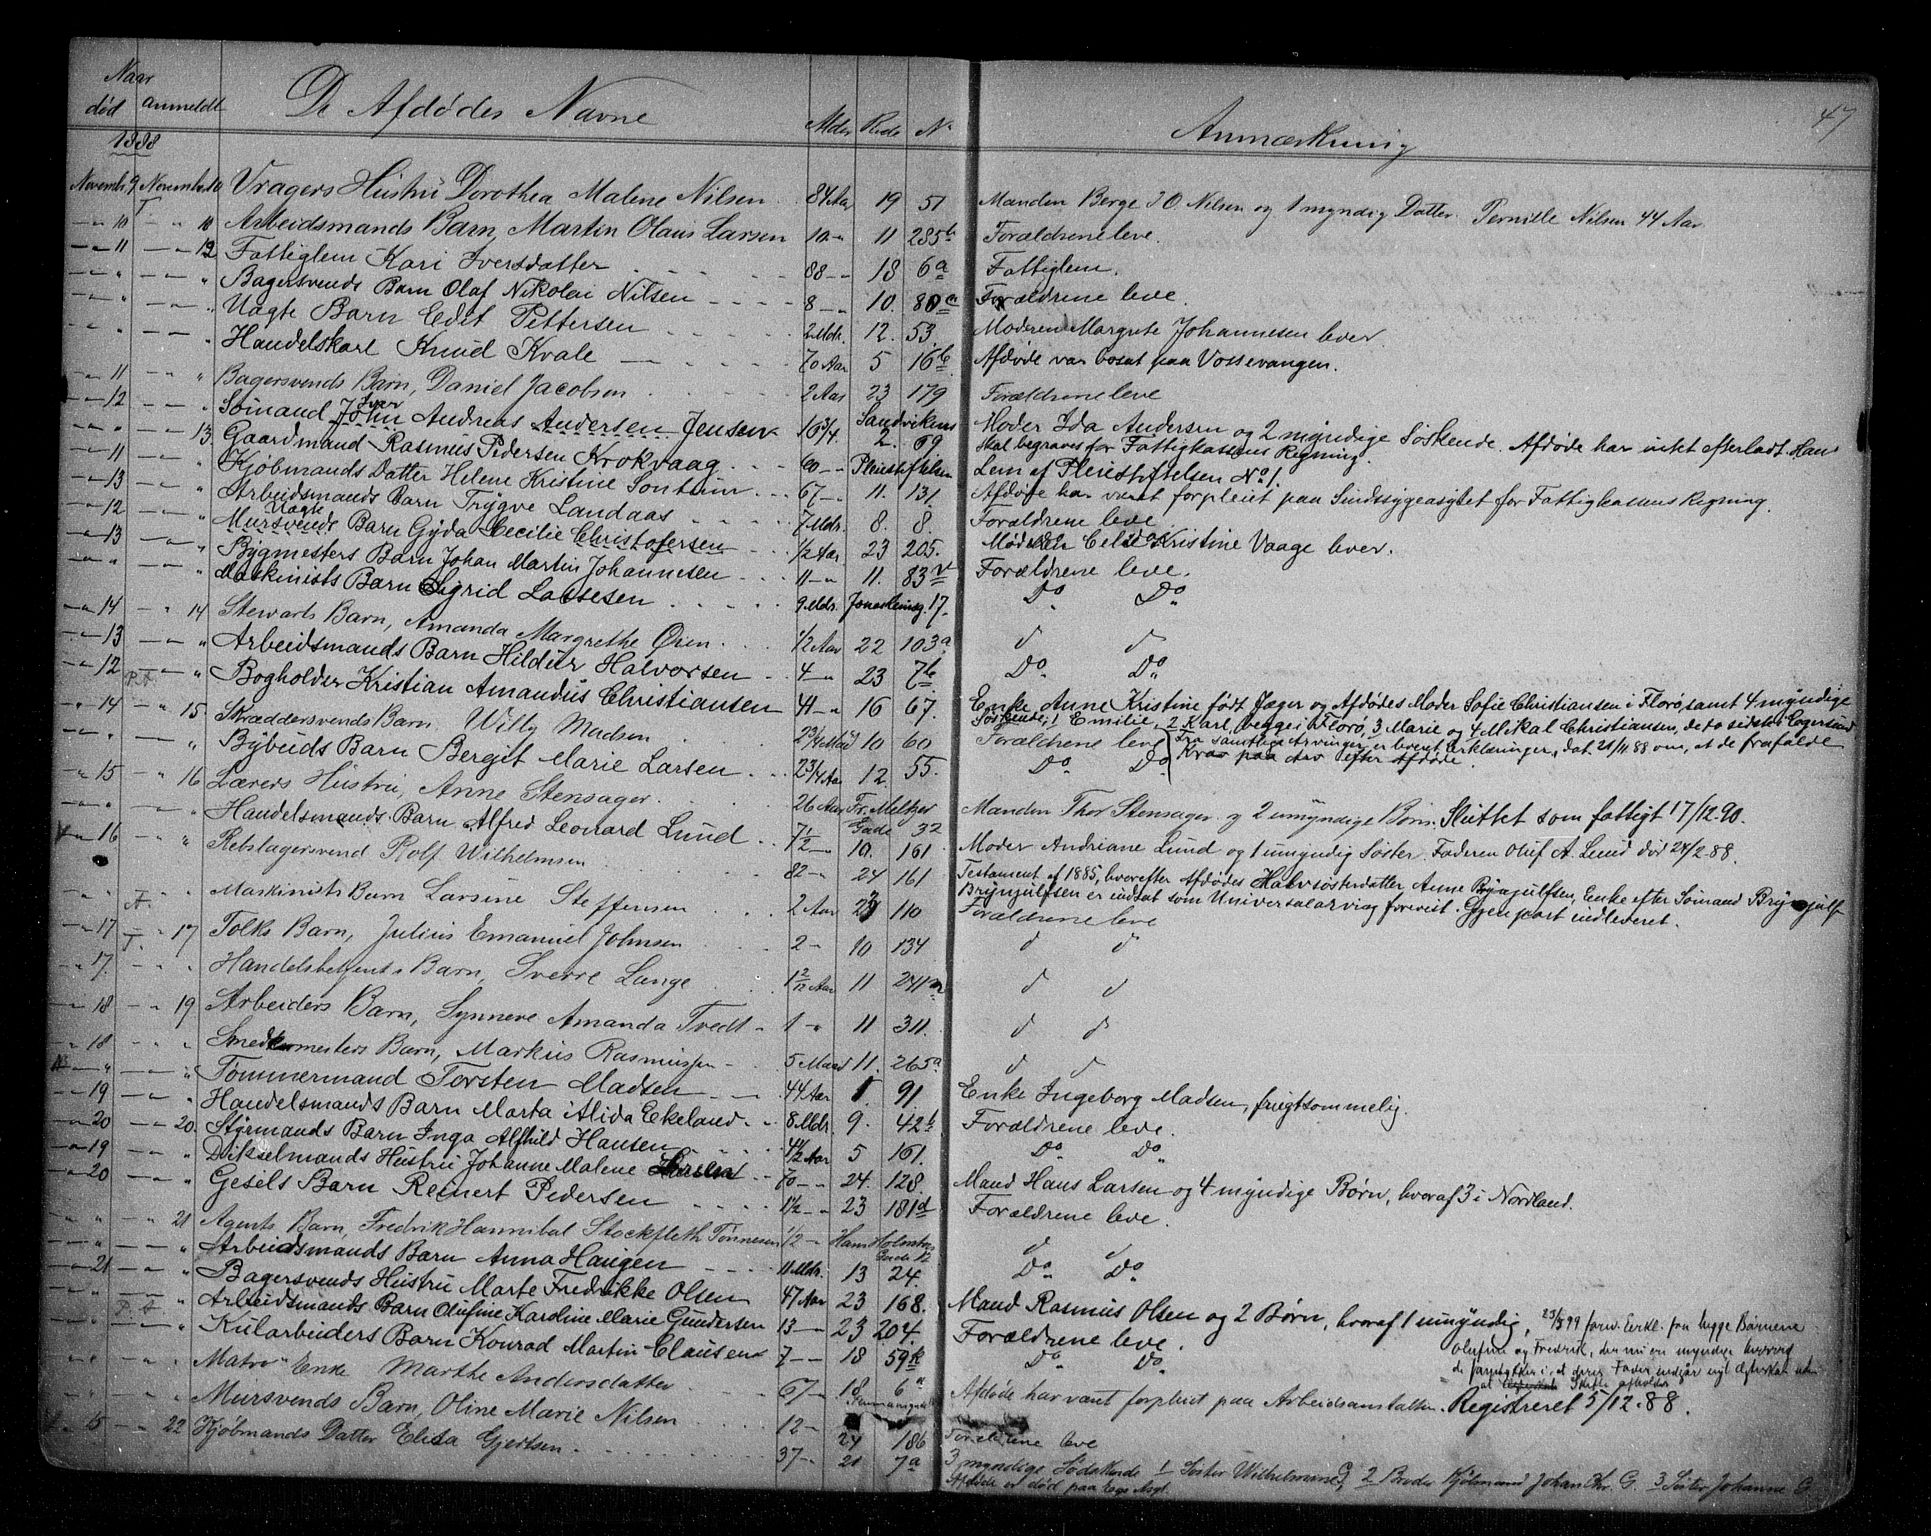 47
Naar
død anmeldt De Afdødes Navne Alder Rode No Anmærkning
1888
Novemb. 9 November 10 Vragers Hustru Dorothea Malene Nilsen 84 Aar 19 51 Manden Berge J O Nilsen og 1 myndig Datter Pernille Nilsen 44 Aar
10 T. 10 Arbeidsmands Barn, Martin Olaus Larsen 10 11 285b Forældrene leve.
11 12 Fattiglem Kari Iversdatter 88 18 6a Fattiglem.
Bagersvends Barn Olaf Nikolai Nilsen 8 10. 80a Forældrene leve.
Uægte Barn Edit Pettersen 2 Mdr. 12. 53. Moderen Margrete Johannesen lever.
Handelskarl Knud Kvale 70 Aar 5 16b Afdøde var bosat paa Vossevangen.
11 Bagersvends Barn, Daniel Jacobsen 2 Aar 23 179 Forældrene leve
12 Sømand John Iver Andreas Andersen Jensen 16 3/4 Sandviken 2. 69 Moder Ida Andersen og 2 myndige Søskende. Afdøde har intet efterladt. Han
Skal begraves for Fattigkassens Regning.
13. Gaardmand Rasmus Pedersen Krokvaag 60 Pleiestiftelsen Lem af Pleiestiftelsen No 1.
11 Kjøbmands Datter Helene Kristine Sontum 67 11. 131. Afdøde har været forpleiet paa Sindssygeasylet for Fattigkassens Regning.
13 Arbeidsmands Barn Trygve Landaas 7 Mdr. 8. 8. Forældrene leve
12 Mursvends Uægte Barn Gyda Cecilie Christofersen 1/2 Aar 23 205. Kristine Vaage lever.
13 Bygmesters Barn Johan Martin Johannesen 11 11. 83 Forældrene leve.
Maskinists Barn Sigrid Lassesen 9 Mdr. 17. Do Do
14 14 Stewarts Barn, Amanda Margrethe Øien 1/2 Aar 22 103a d d
13 Arbeidsmands Barn Hildur Halvorsen 4 23 7b Do Do
12 P.A. Bogholder Kristian Amandus Christiansen 41 16 67. Enke Anne Kristine født Jæger og Afdødes Moder Sofie Christiansen i Florø samt 4 myndige
Søskende: 1 Emilie, 2 Karl, begge i Florø, 3 Marie og 4 Mikal Christiansen, de to sidste i Egersund
14 15. Skræddersvends Barn Willy Madsen 2 3/4 10 60 Forældrene leve
Fra samtlige Arvinger er leveret Erklæringer, dat. 21/11 88 om, at de frafalde
Krav paa Arv efter Afdøde.
Bybuds Barn Bergit Marie Larsen 2 3/4 Aar 12 55. Do Do
15 16 Lærers Hustru, Anne Stensager 26 Aar Fr. Meltzer Gade 32 Manden Thor Stensager og 2 umyndige Børn. Sluttet som fattigt 17/12.90.
Handelsmands Barn Alfred Leonard Lund 7 1/2 10. 161 Moder Andriane Lund og 1 umyndig Søster. Faderen Oluf A. Lund død 24/2.88.
16 Rebslagersvend Rolf Wilhelmsen 82 24 161 Testament af 1885, hvorefter Afdødes Halvsøsterdatter Anne Brynjulfsen, Enke efter Sømand Brynjulf
Brynjulfsen er indsat som Universalarving foreviist. Gjenpart indleveret.
A. Maskinists Barn Larsine Steffensen 2 Aar 110 Forældrene leve
17 T. 17 Tolks Barn, Julius Emanuel Johnsen 2 10 134 d d
17. Handelsbetjents Barn, Sverre Lange 1 2/12 Aar 11 241 d d
18 19 Arbeiders Barn, Synneve Amanda Tvedt 1 11 311. d d
18 Smedemesters Barn, Markus Rasmussen 5 Maand 11. 265a d d
Tømmermand Torsten Madsen 44 Aar 1. 91 Enke Ingeborg Madsen, frugtsommelig.
19 Handelsmands Barn Marta Alida Ekeland 8 Mdr. 9. 42b Forældrene leve.
20 20. Styrmands Barn Inga Alfhild Hansen 4 1/2 Aar 5 161. Do Do
19 Dikselmands Hustru Johanne Malene Larsen 70 24. 128. Mand Hans Larsen og 4 myndige Børn, hvoraf 3 i Nordland.
20 Gesels Barn Reinert Pedersen 1 1/2 23 181d Forældrene leve.
21 Agents Barn, Fredrik Hannibal Stockfleth Tønnesen 1/2 Hans Holmboes Gade 12 d d
Arbeidsmands Barn Anna Haugen 11 Mdr. 13 24. Do Do
21 Bagersvends Hustru Marte Fredrikke Olsen 47 Aar 23 168. Mand Rasmus Olsen og 2 Børn, hvoraf 1 umyndig,
P.A. Arbeidsmands Barn Olufine Karoline Marie Gundersen 13 23 204. Forældrene leve.
Kularbeiders Barn Konrad Martin Clausen 7 18 59k Do Do
Matro Enke Marthe Andersdatter 67 18 6a Afdøde har vært forpleiet paa Arbeidsanstalten. Registreret 5/12.88.
Mursvends Barn, Oline Marie Nilsen 12 24 186 Forældrene leve
15 22 Kjøbmands Datter Elisa Gjertsen 37 21 7a 3 myndige Sødskende 1 Søster Wilhelmine G, 2 Broder Kjøbmand Johan Chr. G. 3 Søster Johanne G.
Afdøde er død paa